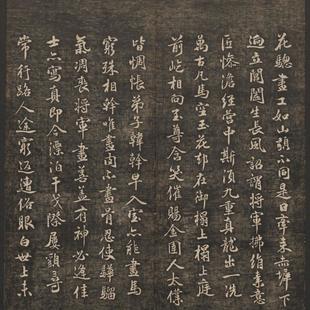 花驄畫工如山貌不同是日牽來赤墀下
迥立閶闔生長風詔謂將軍拂絹素意
匠慘澹經營中斯須九重真龍出一洗
萬古凡馬空玉花却在御榻上榻上庭
前屹相向至尊含笑催賜金圉人太僕
皆惆悵弟子韓幹早入室亦能畫馬
窮殊相幹惟畫肉不畫骨忍使驊騮
氣凋喪將軍畫善蓋有神必逢佳
士亦寫真即今漂泊干戈際屢貌尋
常行路人途窮返遭俗眼白世上未